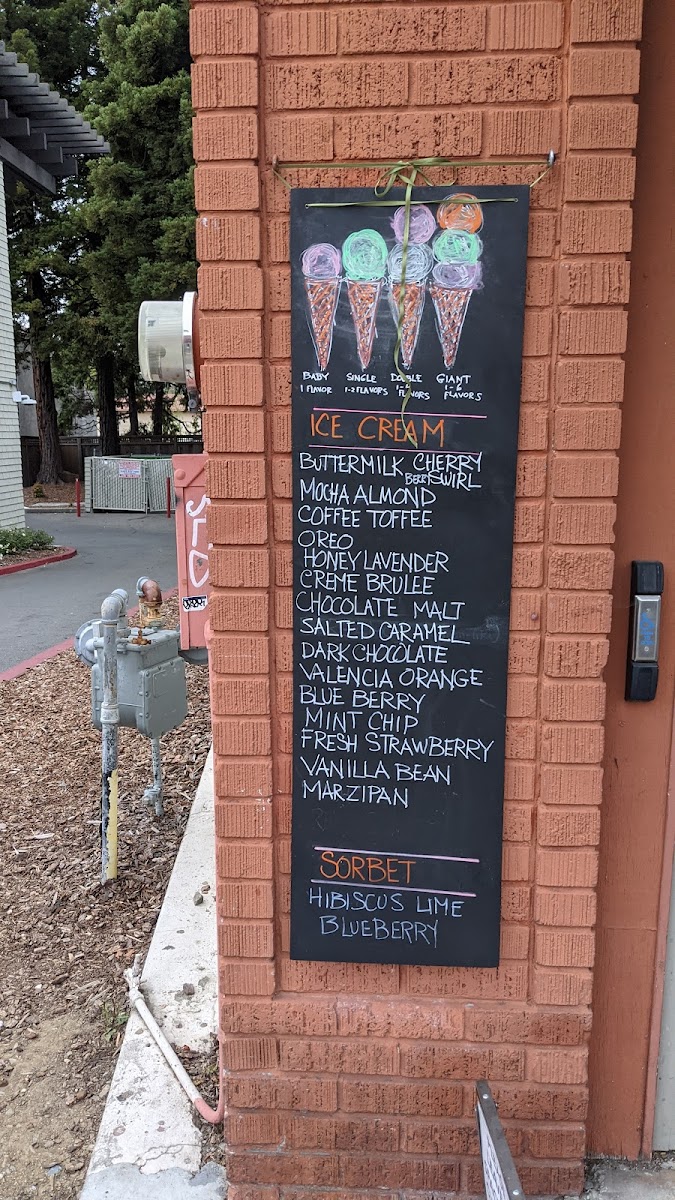 BABY SINGLE DOUBLE GIANT
1 FLAVOR 1-2 FLAVORS FLAVORS 1-6 FLAVORS
ICE CREAM
BUTTERMILK CHERRY
BERRY SWIRL
MOCHA ALMOND
COFFEE TOFFEE
OREO
HONEY LAVENDER
CREME BRULEE
CHOCOLATE MALT
SALTED CARAMEL
DARK CHOCOLATE
VALENCIA ORANGE
BLUE BERRY
MINT CHIP
FRESH STRAWBERRY
VANILLA BEAN
MARZIPAN
SORBET
HIBISCUS LIME
BLUEBERRY